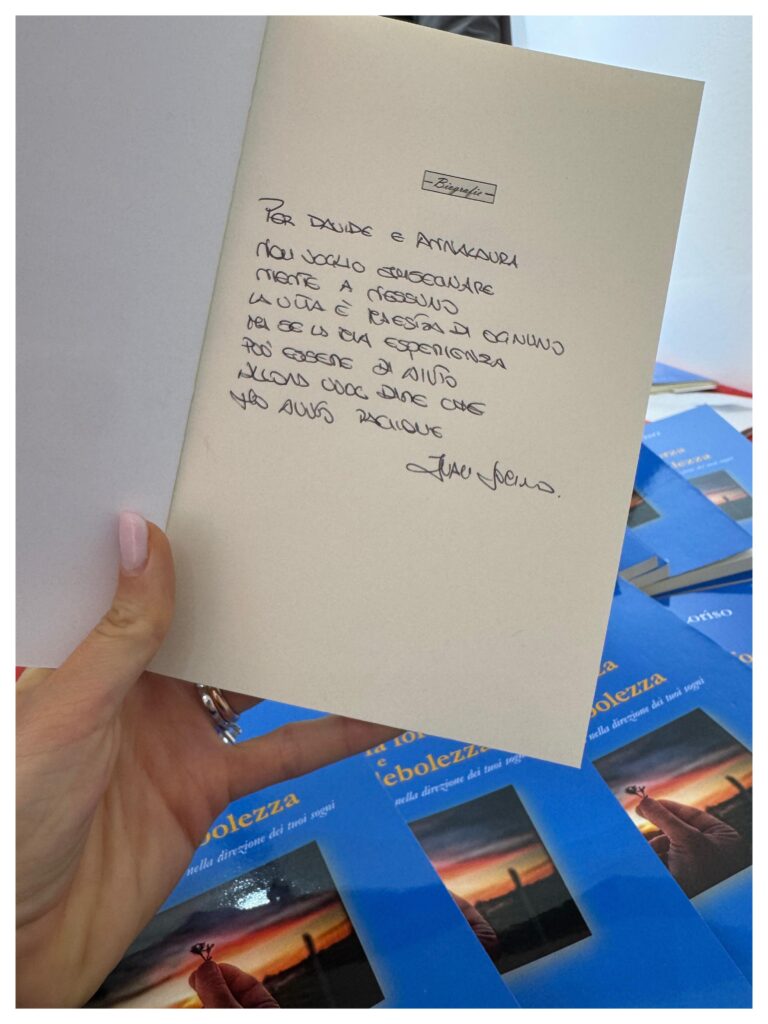 Biografie
PER DAVIDE E ANNALAURA
NON VOGLIO INSEGNARE
NIENTE A NESSUNO
LA VITA È MAESTRA DI OGNUNO
MA SE LA MIA ESPERIENZA
PUÒ ESSERE DI AIUTO
ALLORA VUOL DIRE CHE
HO AVUTO RAGIONE
oriso
bolezza
nella direzione dei tuoi sogni
la
e
debolezza
nella direzione dei tuoi sogni
bolezza
nella direzione dei tuoi sogni